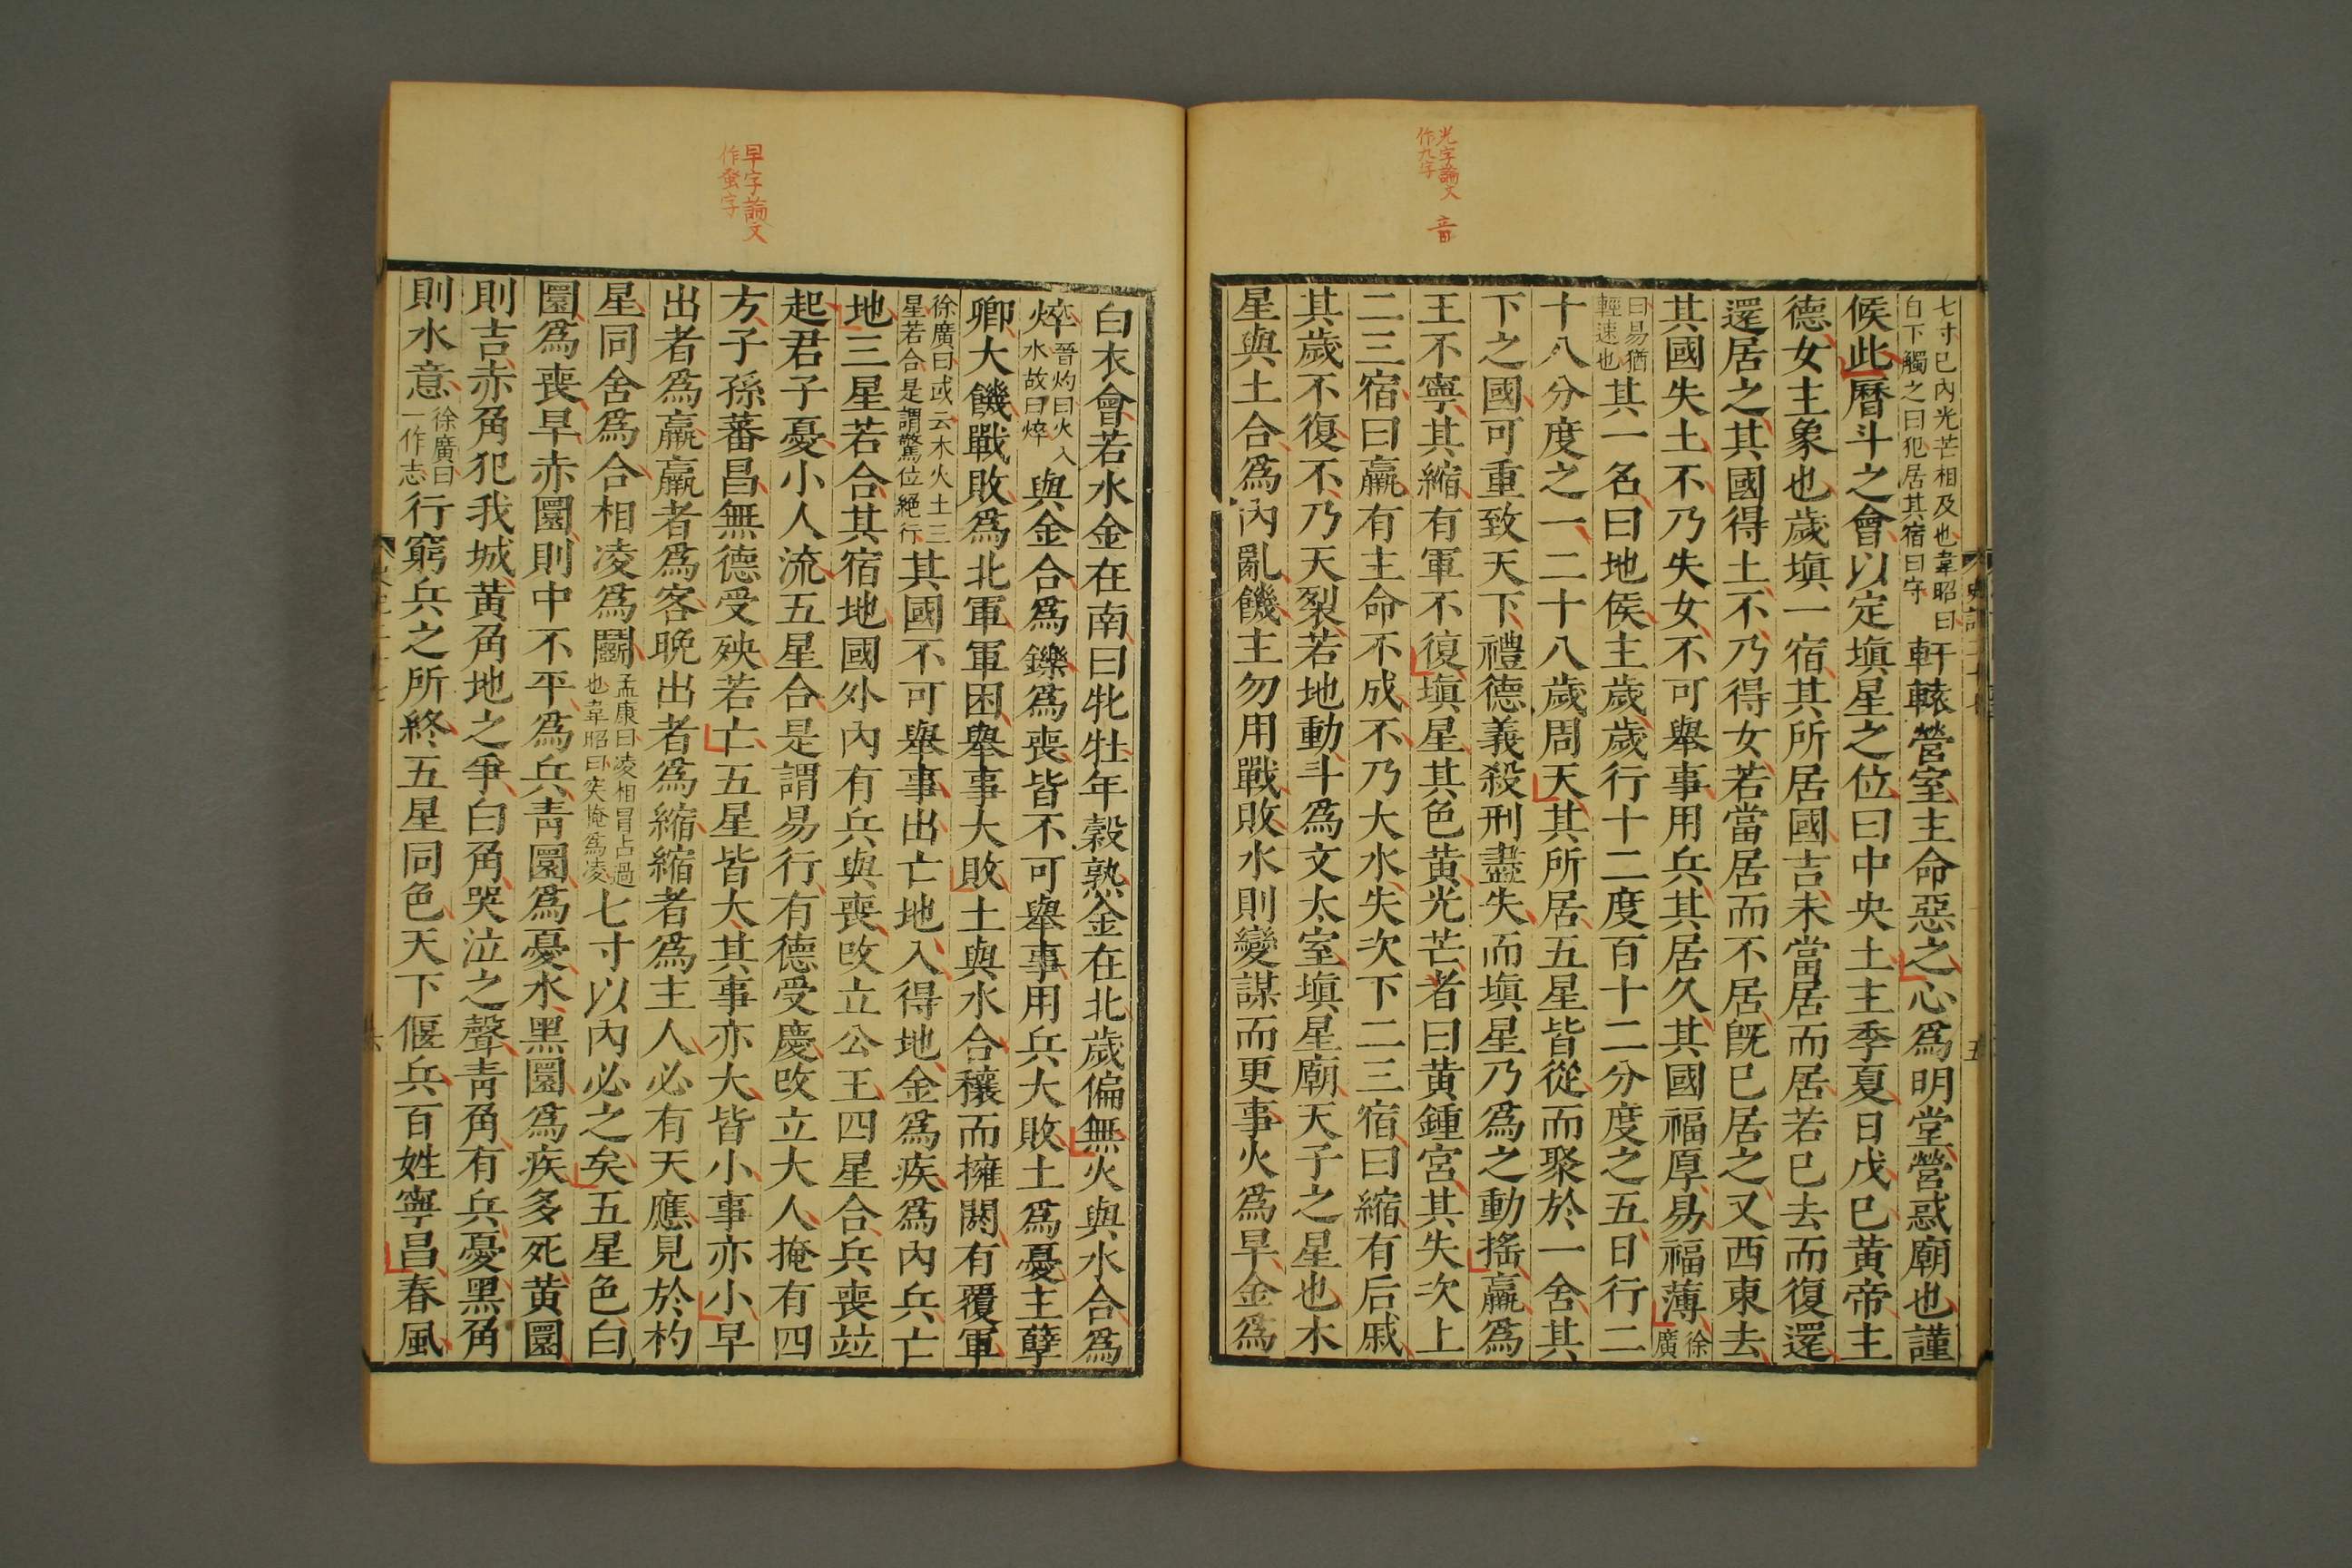 光字論文
作九字
音
七寸已內光芒相及也韋昭曰
自下觸之曰犯居其宿曰守
軒轅營室主命惡之心為明堂營惑廟也謹
候此曆斗之會以定塡星之位曰中央土主季夏日戊己黃帝主
德女主象也歲塡一宿其所居國吉未當居而居若已去而復還
還居之其國得土不乃得女若當居而不居既已居之又西東去
其國失土不乃失女不可舉事用兵其居久其國福厚易福薄
徐
廣
曰易猶
輕速也
其一名曰地侯主歲歲行十二度百十二分度之五日行二
十八分度之一二十八歲周天其所居五星皆從而聚於一舍其
下之國可重致天下禮德義殺刑盡失而塡星乃為之動搖贏為
王不寧其縮有軍不復塡星其色黃光芒者曰黃鍾宮其失次上
二三宿曰贏有主命不成不乃大水失次下二三宿曰縮有后戚
其歲不復不乃天裂若地動斗為文太室塡星廟天子之星也木
星與土合為內亂饑主勿用戰敗水則變謀而更事火為旱金為
早字論文
作蚤字
白衣會若水金在南曰牝牡年穀熟金在北歲偏無火與水合為
焠
晉灼曰火入
水故曰焠
與金合為鑠為喪皆不可舉事用兵大敗土為憂主孽
卿大饑戰敗為北軍軍困舉事大敗土與水合穰而擁閼有覆軍
徐廣曰或云木火土三
星若合是謂驚位絕行
其國不可舉事出亡地入得地金為疾為內兵亡
地三星若合其宿地國外內有兵與喪改立公王四星合兵喪竝
起君子憂小人流五星合是謂易行有德受慶改立大人掩有四
方子孫蕃昌無德受殃若亡五星皆大其事亦大皆小事亦小早
出者為贏贏者為客晚出者為縮縮者為主人必有天應見於杓
星同舍為合相凌為鬭
孟康曰凌相冒占過
也韋昭曰突掩為凌
七寸以內必之矣五星色白
圜為喪旱赤圜則中不平為兵青圜為憂水黑圜為疾多死黃圜
則吉赤角犯我城黃角地之爭白角哭泣之聲青角有兵憂黑角
則水意
徐廣曰
一作志
行窮兵之所終五星同色天下偃兵百姓寧昌春風